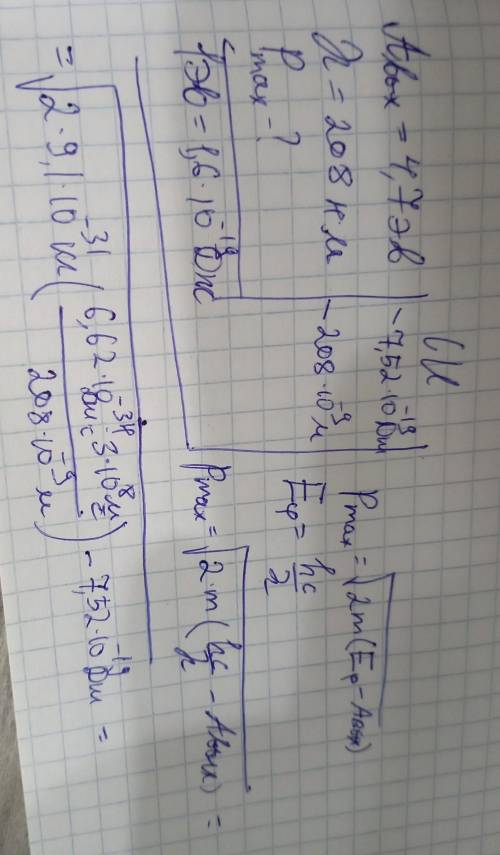 Aвых = 4,7 эВ
λ = 208 нм
Pmax - ?
1эВ = 1,6·10⁻¹⁹ Дж
СИ
- 7,52·10⁻¹⁹ Дж
- 208·10⁻⁹ м
Pmax = √2m(Eф - Aвых)
Eф = hc/λ
Pmax = √2·m(hc/λ - Aвых) =
= √2·9,1·10⁻³¹ кг(6,62·10⁻³⁴ Дж·с·3·10⁸ м/с / 208·10⁻⁹ м) - 7,52·10⁻¹⁹ Дж =